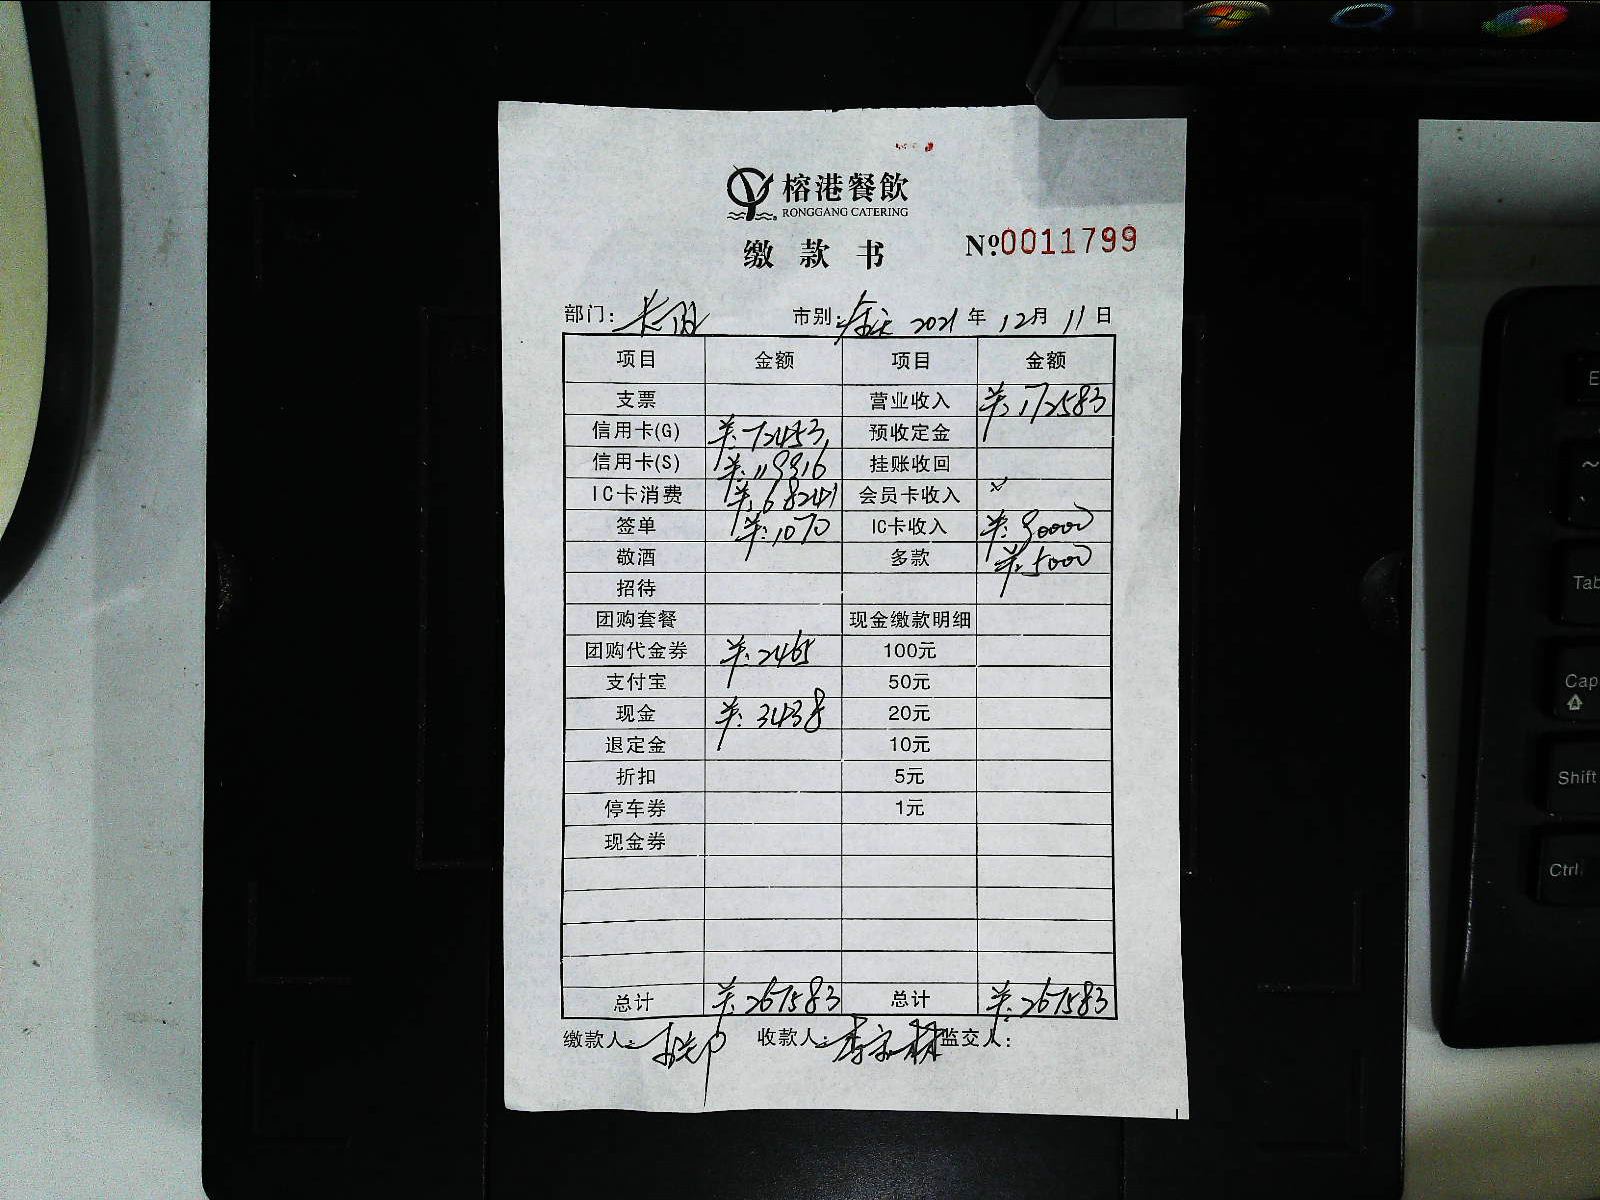 榕港餐飲
RONGGANG CATERING
缴款书 №0011799
部门: 市别: 全天 2021年12月11日
项目 金额 项目 金额
支票 营业收入 ¥:172583
信用卡(G) ¥:72453 预收定金
信用卡(S) ¥:119916 挂账收回
IC卡消费 ¥:68241 会员卡收入
签单 ¥:1070 IC卡收入 ¥:90000
敬酒 多款 ¥:5000
招待
团购套餐 现金缴款明细
团购代金券 ¥:2465 100元
支付宝 50元
现金 ¥:3438 20元
退定金 10元
折扣 5元
停车券 1元
现金券
总计 ¥:267583 总计 ¥:267583
缴款人: 收款人: 监交人:
Tab
Cap
Shift
Ctrl